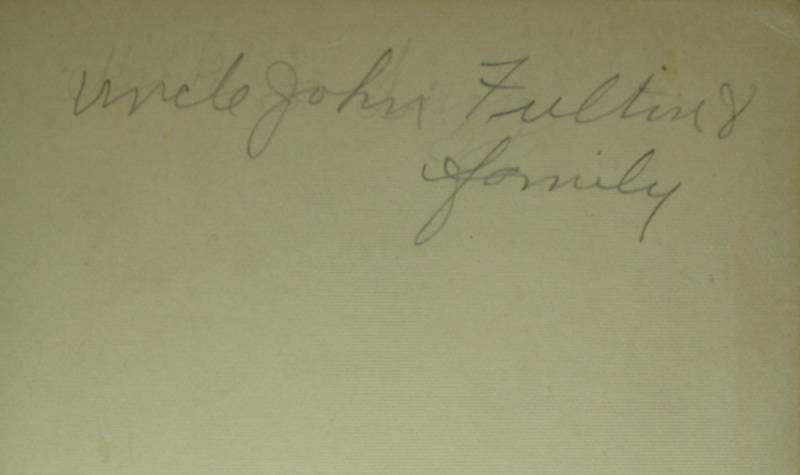 Uncle John Fulton &
family